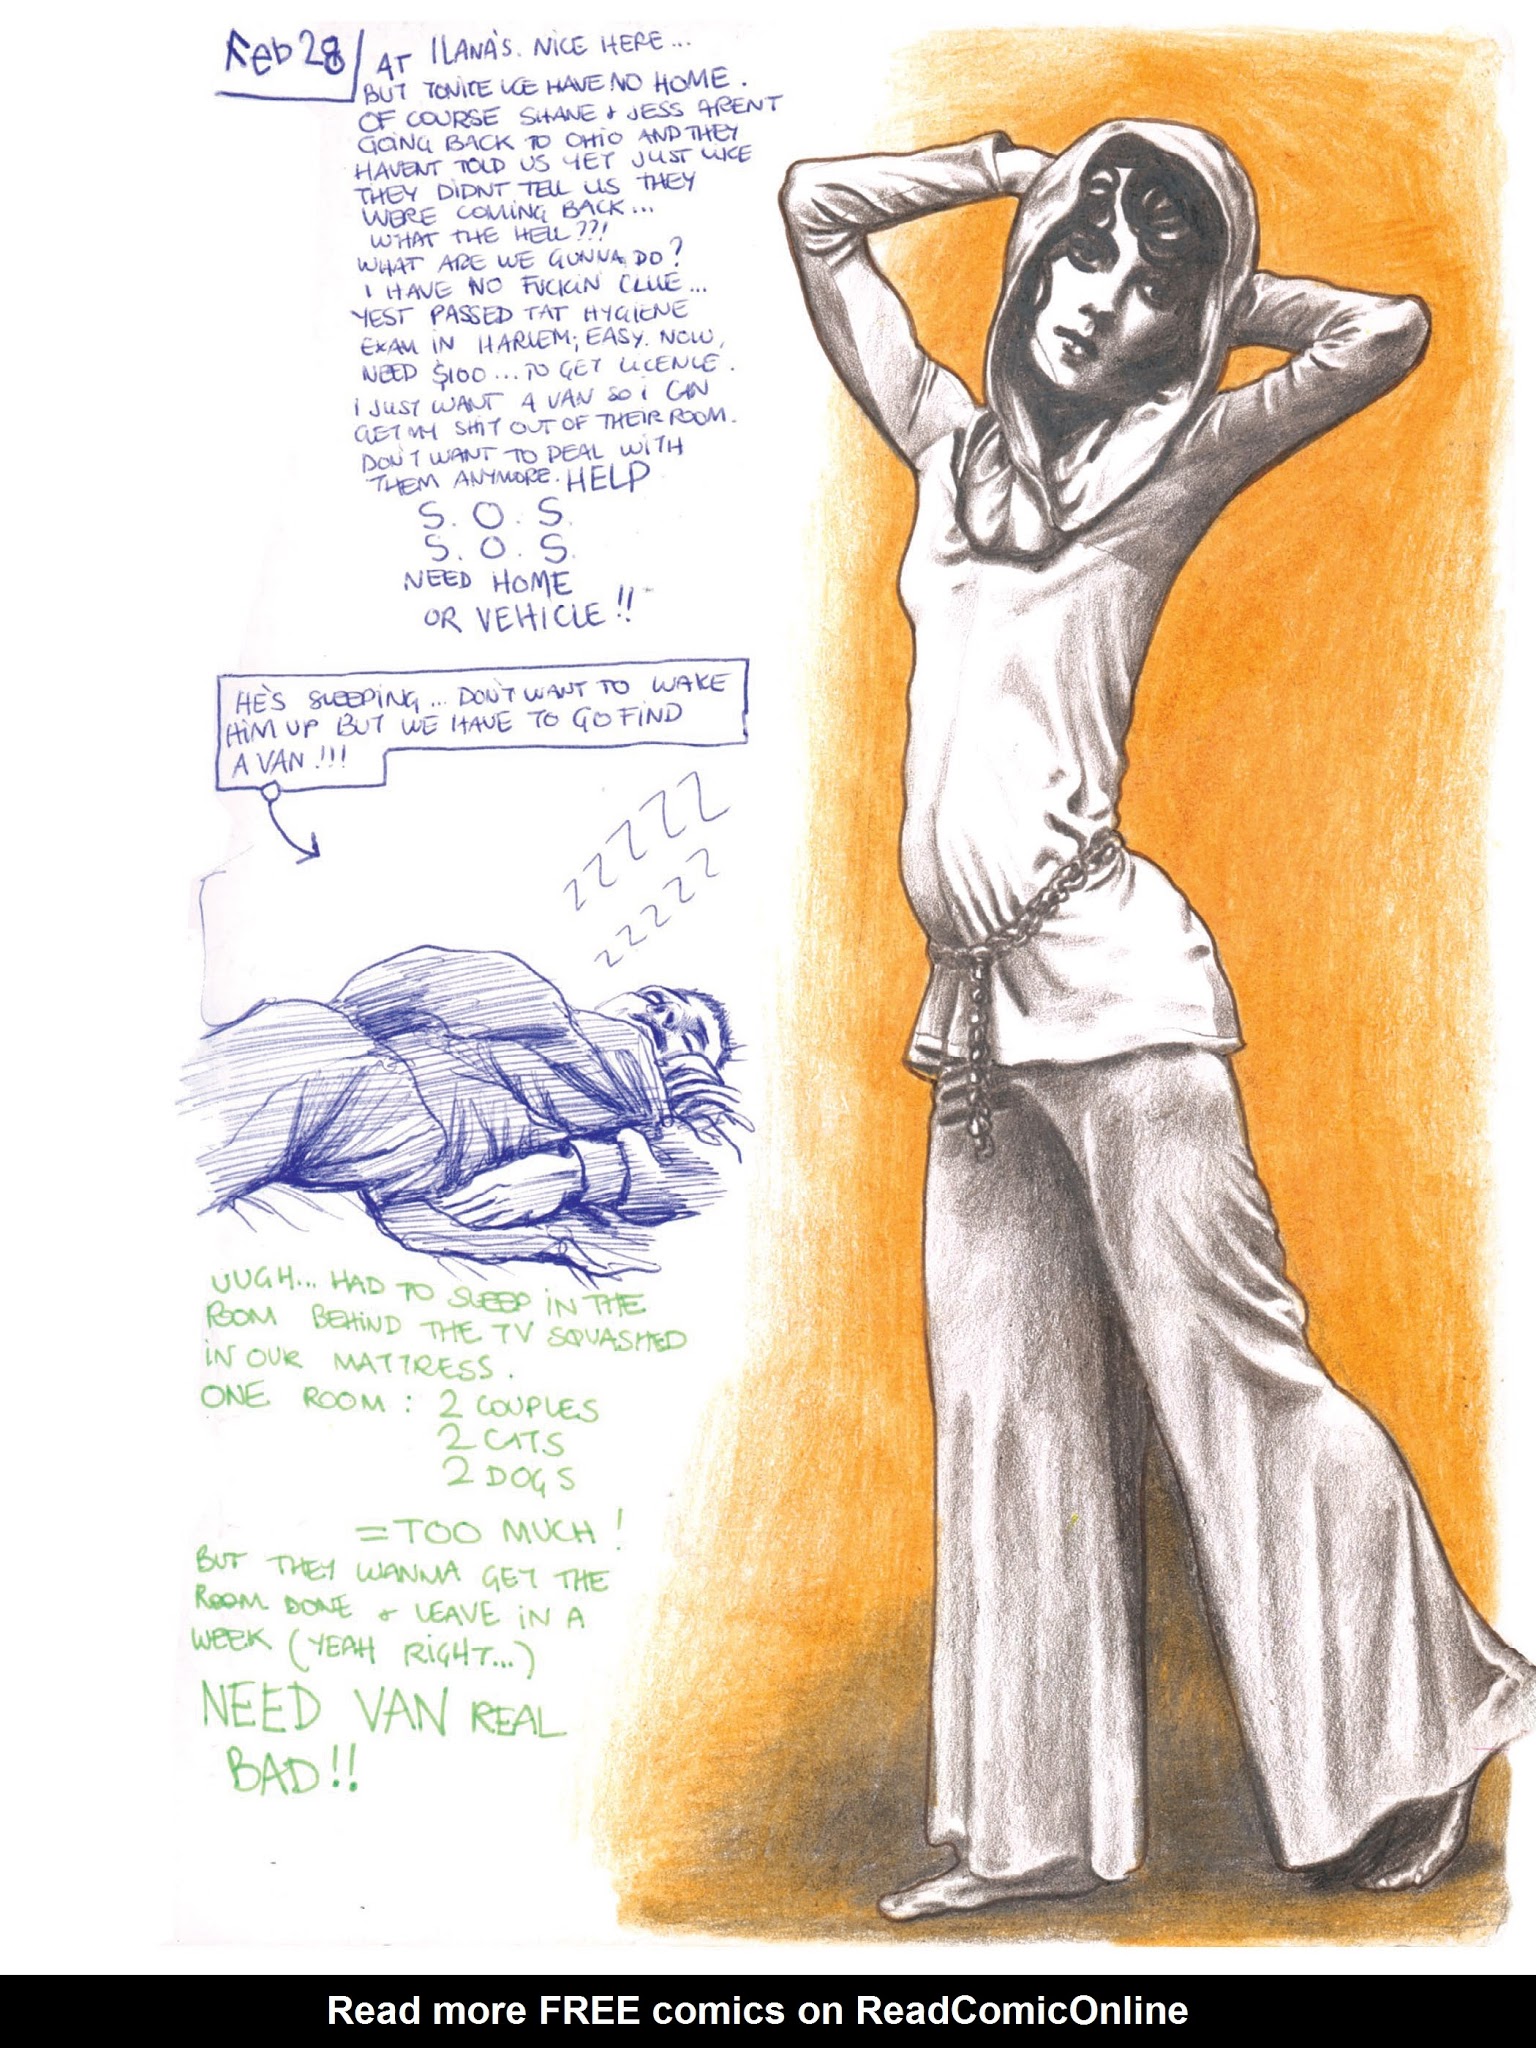 Feb 28
AT ILANA'S. NICE HERE...
BUT TONITE WE HAVE NO HOME.
OF COURSE SHANE & JESS ARENT
GOING BACK TO OHIO AND THEY
HAVENT TOLD US YET JUST LIKE
THEY DIDNT TELL US THEY
WERE COMING BACK...
WHAT THE HELL??!
WHAT ARE WE GUNNA DO?
I HAVE NO FUCKIN CLUE...
YEST PASSED TAT HYGIENE
EXAM IN HARLEM; EASY. NOW,
NEED $100... TO GET LICENCE.
I JUST WANT A VAN SO I CAN
GET MY SHIT OUT OF THEIR ROOM.
DON'T WANT TO DEAL WITH
THEM ANYMORE. HELP
S. O. S.
S. O. S.
NEED HOME
OR VEHICLE!!
HE'S SLEEPING... DON'T WANT TO WAKE
HIM UP BUT WE HAVE TO GO FIND
A VAN!!!
ZZZZZZ
ZZZZZ
UUGH... HAD TO SLEEP IN THE
ROOM BEHIND THE TV SQUASHED
IN OUR MATTRESS.
ONE ROOM: 2 COUPLES
2 CATS
2 DOGS
= TOO MUCH!
BUT THEY WANNA GET THE
ROOM DONE & LEAVE IN A
WEEK (YEAH RIGHT...)
NEED VAN REAL
BAD!!
Read more FREE comics on ReadComicOnline